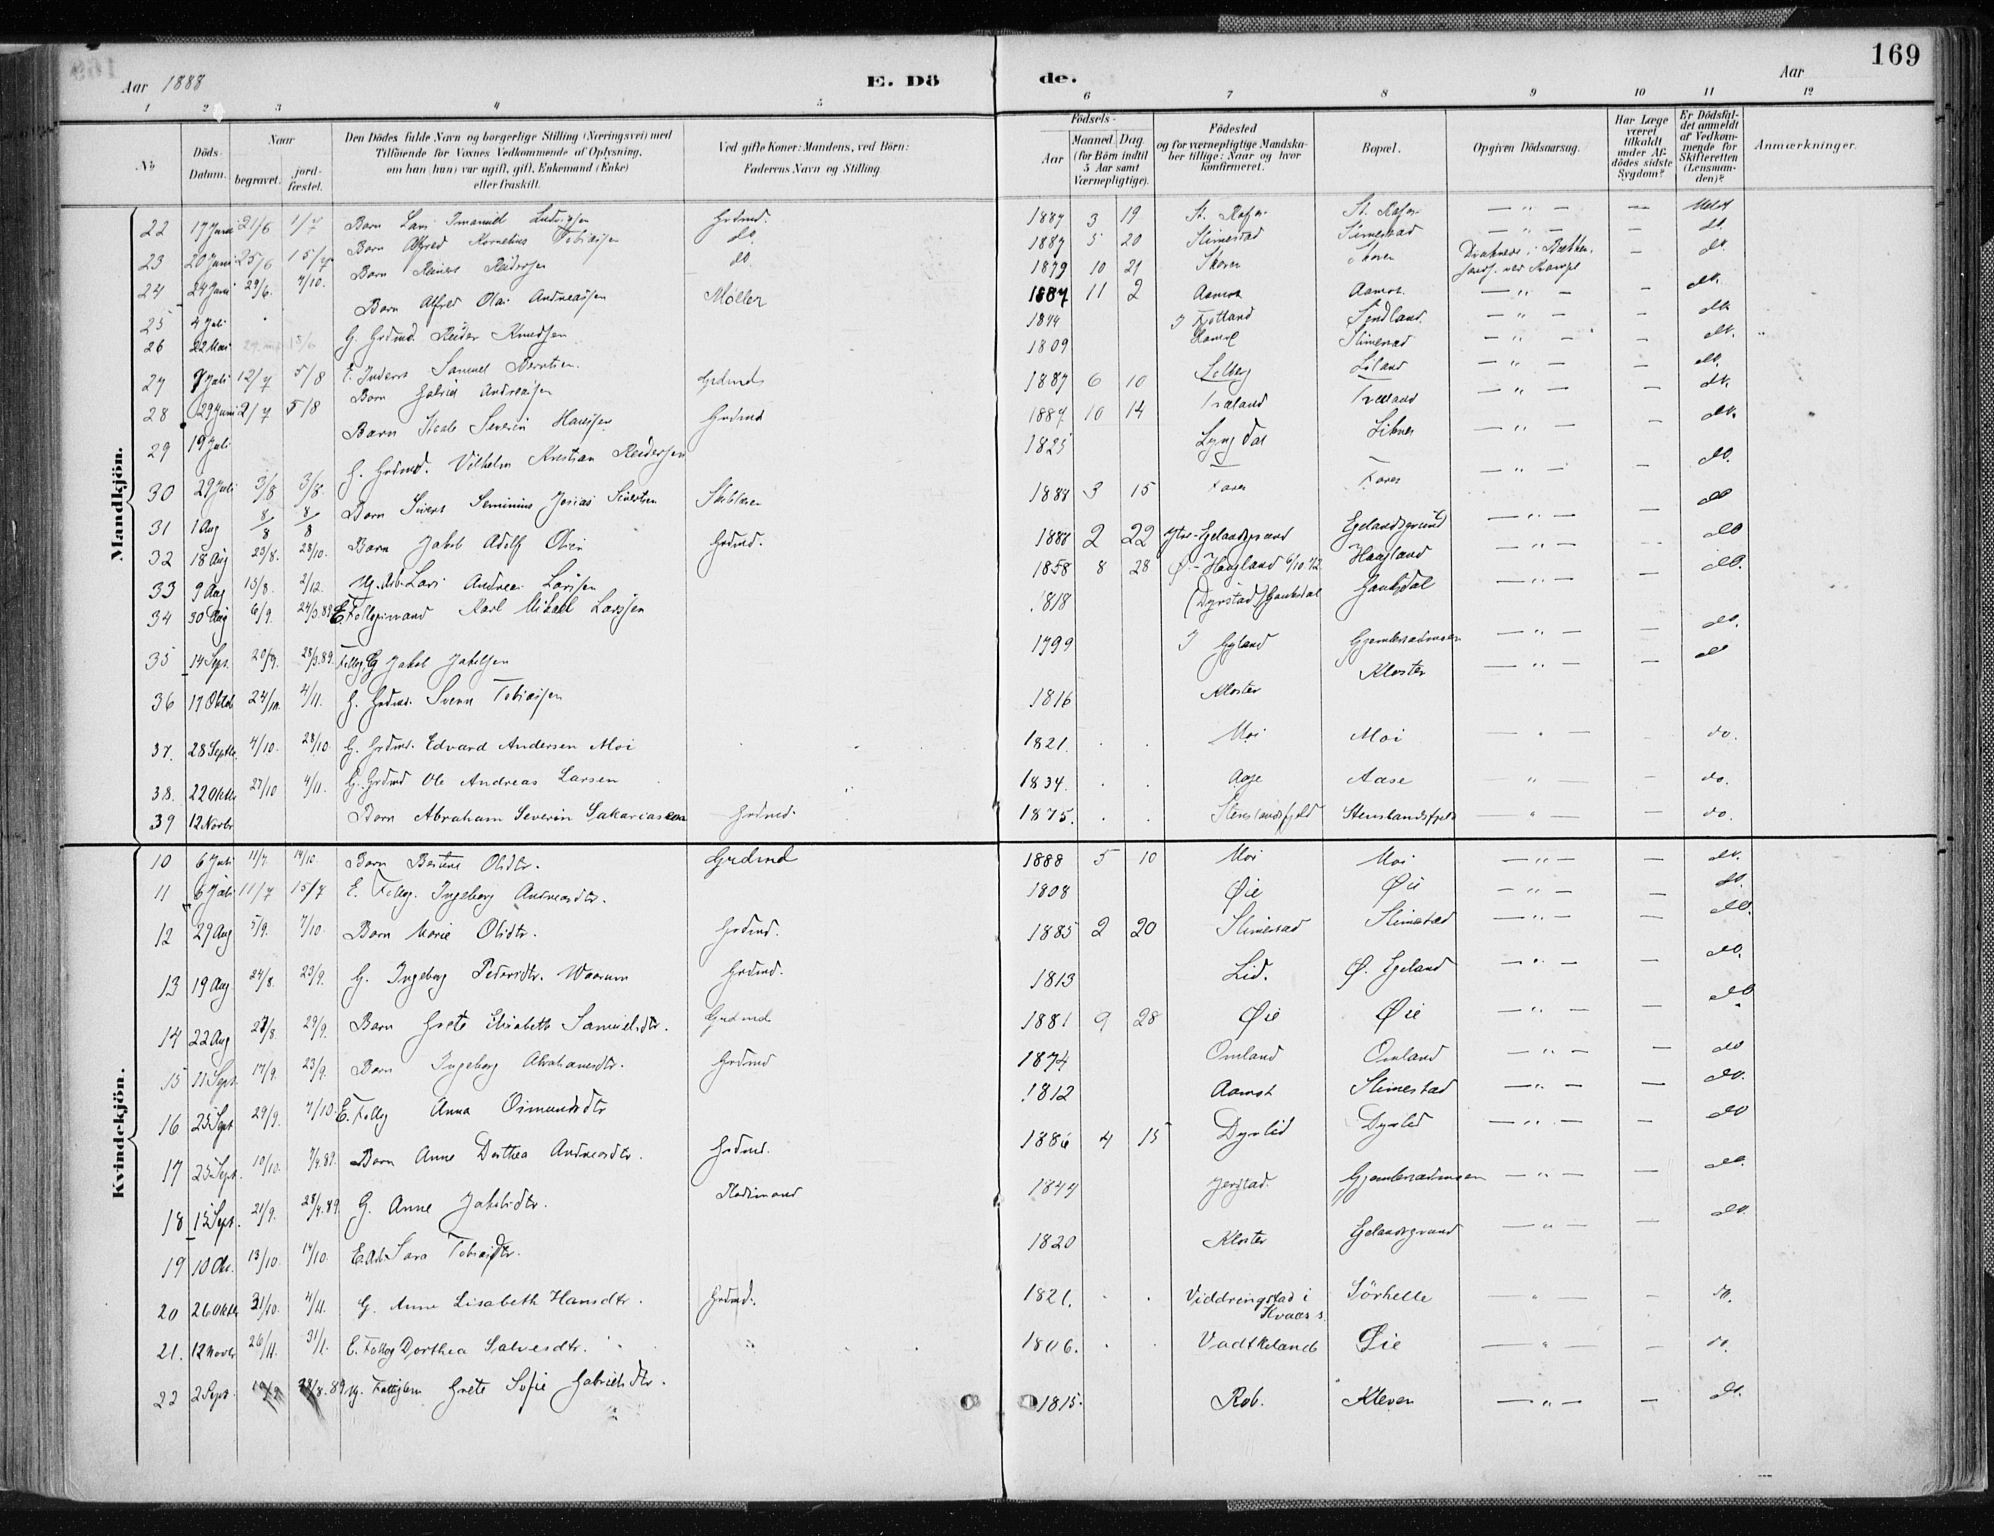 169
Aar 1888
E. Dö
de.
Aar
1 2 3 4 5 6 7 8 9 10 11 12
No
Döds-Datum.
Naar
begravet.
jord-fæstet.
Den Dödes fulde Navn og borgerlige Stilling (Næringsvei) med
Tilföiende for Voxnes Vedkommende af Oplysning,
om han (hun) var ugift, gift, Enkemand (Enke)
eller fraskilt.
Ved gifte Koner: Mandens, ved Börn:
Faderens Navn og Stilling.
Födsels-
Aar
Maaned Dag
(for Börn indtil
5 Aar samt
Værnepligtige).
Födested
og for værnepligtige Mandska-
ber tillige: Naar og hvor
konfirmeret.
Bopæl.
Opgiven Dödsaarsag.
Har Læge
været
tilkaldt
under Af-
dödes sidste
Sygdom?
Er Dödsfal-
det anmeldt
af Vedkom-
mende for
Skifteretten
(Lensman-
den)?
Anmærkninger.
Mandkjön.
22 17 Juni 21/6 1/7 Barn Lars Imanuel Ludvigsen Grdmd. 1887 3 19 St. Rafos St. Rafos — " — —
23 20 Juni 25/6 15/7 Barn Alfred Kornelius Tobiassen do. 1887 5 20 Slimestad Slimestad — " — — do.
24 24 Juni 29/6. 7/10. Barn Reinert Reidersen do 1879 10 21 Skoren Skoren — do.
25 4 Juli Barn Alfred Olai Andreassen Møller 1887 11 2 Aamot Aamot — " — — do.
26 22 Mai G. Grdmd. Reider Knudsen 1844 I Fjotland Sindland — " — — do
27 7 Juli 12/7 5/8 E. Inderst Samuel Berntsen 1809 Slimestad — " — — do.
28 29 Juni 2/7 5/8 Barn Gabriel Andreassen Grdmds 1887 6 10 Solberg Loland — " — — do.
29 19 Juli Barn Severin Hansen Grdmd 1887 10 14 Træland Træland — " — — do.
30 29 Juli 3/8 3/8. G. Grdmd. Vilhelm Kristian Reidersen 1825 Lyngdal Liknes — " — — do.
31 1 Aug 8/8 8/8 Barn Sivert Seminius Josias Sivertsen 1888 3 15 — " — — do.
32 18 Aug 23/8. 28/10. Barn Jakob Adolf Olsen Grdmd. 1888 2 22 Ytre-Egelandsgrund Egelandsgrund — " — — do
33 9 Aug 13/8. 2/12. Ug. Arb. Lars Andreas Larssen 1858 8 28 Ø. Haugland 6/10 72. Haugland — " — — do
34 30 Aug 6/9. 24/3.89 E. Fattigmand Karl Mikael Larssen 1818 (Dyrstad) — " — — do.
35 14 Sept. 20/9. 28/3.89. Fattig G. Jakob Jakobsen 1799 I Gyland — " — — do.
36 17 Oktob 24/10. 4/11. G. Grdmd. Svenn Tobiassen 1816 Kloster Kloster — " — — do
37. 28 Septbr 4/10. 28/10. G. Grdmd. Edvard Andersen Moi 1821. . . Moi Moi — " — — do.
38. 22 Oktbr 27/10 4/11. G. Grdmd Ole Andreas Larsen 1834. . . Aase Aase — " — — do.
39 12 Novbr Barn Abraham Severin Sakariassen Grdmd. 1875. . . Stenslandsfjeld Stenslandsfjeld — " — — do.
Kvindekjön.
10 6 Juli 11/7 14/10. Barn Bertine Olsdtr. Grdmd 1888 5 10 Moi Moi — " — — do.
11 6 Juli 11/7 15/7 E. Fattig. Ingeborg Andreasdtr. 1808 Øie Øie — " — — do.
12 29 Aug 5/9. 7/10. Barn Marie Olsdtr. Grdmd. 1885 2 20 Slimestad Slimestad — " — — do.
13 19 Aug 24/8. 23/9. G. Ingeborg Pedersdtr. Grdmd. 1813 Lid. Ø. Egeland — " — — do.
14 22 Aug 27/8 29/9. Barn Grete Elisabeth Samuelsdtr. Grdmd 1881 9 28 Øie Øie — " — — do
15 11 Sept. 17/9. 23/9. Barn Ingeborg Abrahamsdtr. Grdmd 1874 Omland Omland — " — — do
16 25 Sept 29/9. 7/10. E. Fattig Anna Osmundsdtr 1812 Aamot Slimestad — " — — do.
17 25 Sept. 10/10. 7/4.89. Barn Anne Dorthea Andreasdtr. Grdmd. 1886 4 15 Dyrlid Dyrlid — " — — do
18 15 Sept. 21/9. 28/4.89. G. Anne Jakobsdtr. 1844 Jerstad. — " — — do.
19 10 Okt. 13/10. 14/10. E. Arb. Sara Tobiasdtr. 1820 Kloster Egelandsgrund — " — — do.
20 26 Oktbr 31/10. 4/11. G. Anne Lisabeth Hansdtr. Grdmd. 1821. . . Viddringstad i Kvaas s. Sörhelle — " — — do.
21. 12 Novbr 26/11. 31/1. E. Fattig Dorthea Salvesdtr. 1806. . . Vadtkeland Øie — " — — do.
22 2 Sept. 10/9 28/8.89 Ug. Fattiglem Grete Sofie Gabrielsdtr. 1815. Rob. Kleven — " — — do.